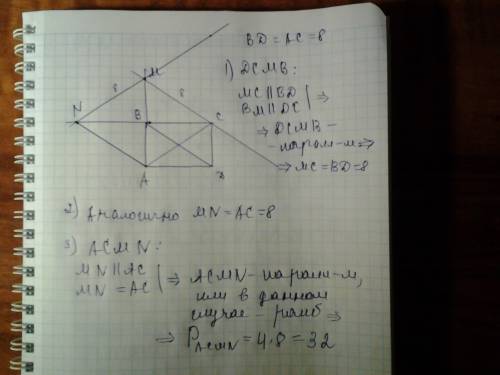 M
8
8
N
B
C
A
D
BD = AC = 8
1) DCMB:
MC || BD
BM || DC | ⇒
⇒ DCMB –
- парал-м ⇒
⇒ MC = BD = 8
2) Аналогично MN = AC = 8
3) ACMN:
MN || AC
MN = AC | ⇒ ACMN – парал-м,
или в данном
случае – ромб ⇒
⇒ P_ACMN = 4·8 = 32